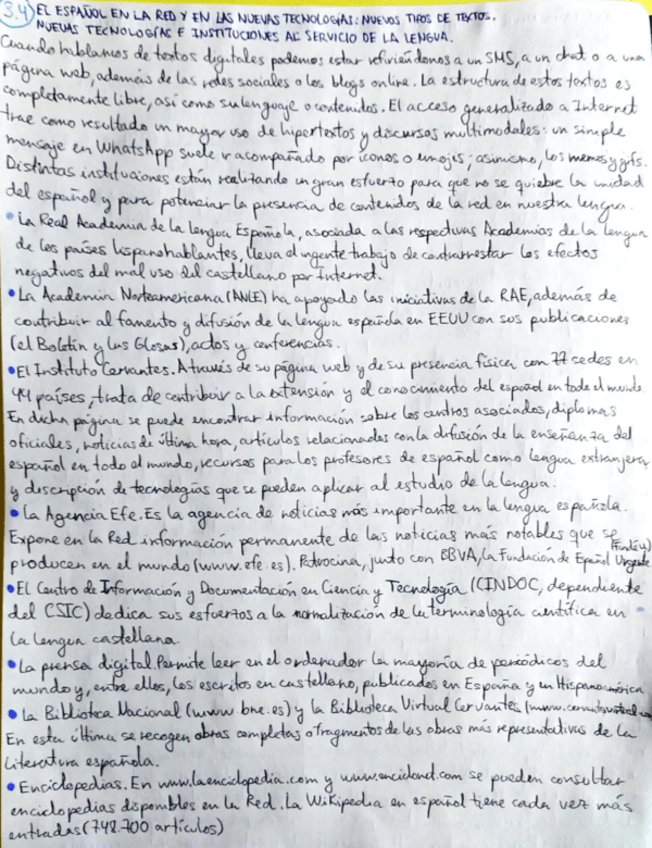 3.4) EL ESPAÑOL EN LA RED Y EN LAS NUEVAS TECNOLOGÍAS: NUEVOS TIPOS DE TEXTOS.
NUEVAS TECNOLOGÍAS E INSTITUCIONES AL SERVICIO DE LA LENGUA.
Cuando hablamos de textos digitales podemos estar refiriéndonos a un SMS, a un chat o a una
página web, además de las redes sociales o los blogs online. La estructura de estos textos es
completamente libre, así como su lenguaje o contenidos. El acceso generalizado a Internet
trae como resultado un mayor uso de hipertextos y discursos multimodales: un simple
mensaje en WhatsApp suele ir acompañado por iconos o emojis; asimismo, los memes y gifs.
Distintas instituciones están realizando un gran esfuerzo para que no se quiebre la unidad
del español y para potenciar la presencia de contenidos de la red en nuestra lengua.
• La Real Academia de la Lengua Española, asociada a las respectivas Academias de la Lengua
de los países hispanohablantes, lleva el ingente trabajo de contrarrestar los efectos
negativos del mal uso del castellano por Internet.
• La Academia Norteamericana (ANLE) ha apoyado las iniciativas de la RAE, además de
contribuir al fomento y difusión de la lengua española en EEUU con sus publicaciones
(el Boletín y las Glosas), actos y conferencias.
• El Instituto Cervantes. A través de su página web y de su presencia física con 77 sedes en
44 países, trata de contribuir a la extensión y el conocimiento del español en todo el mundo.
En dicha página se puede encontrar información sobre los centros asociados, diplomas
oficiales, noticias de última hora, artículos relacionados con la difusión de la enseñanza del
español en todo el mundo, recursos para los profesores de español como lengua extranjera
y descripción de tecnologías que se pueden aplicar al estudio de la lengua.
• La Agencia Efe. Es la agencia de noticias más importante en la lengua española.
Expone en la Red información permanente de las noticias más notables que se
producen en el mundo (www.efe.es). Patrocina, junto con BBVA, la Fundación de Español Urgente (Fundéu)
• El Centro de Información y Documentación en Ciencia y Tecnología (CINDOC, dependiente
del CSIC) dedica sus esfuerzos a la normalización de la terminología científica en
la lengua castellana.
• La prensa digital. Permite leer en el ordenador la mayoría de periódicos del
mundo y, entre ellos, los escritos en castellano, publicados en España y en Hispanoamérica
• La Biblioteca Nacional (www.bne.es) y la Biblioteca Virtual Cervantes
En esta última se recogen obras completas o fragmentos de las obras más representativas de la
literatura española.
• Enciclopedias. En www.laenciclopedia.com y www.encidonet.com se pueden consultar
enciclopedias disponibles en la Red. La Wikipedia en español tiene cada vez más
entradas (748.700 artículos)